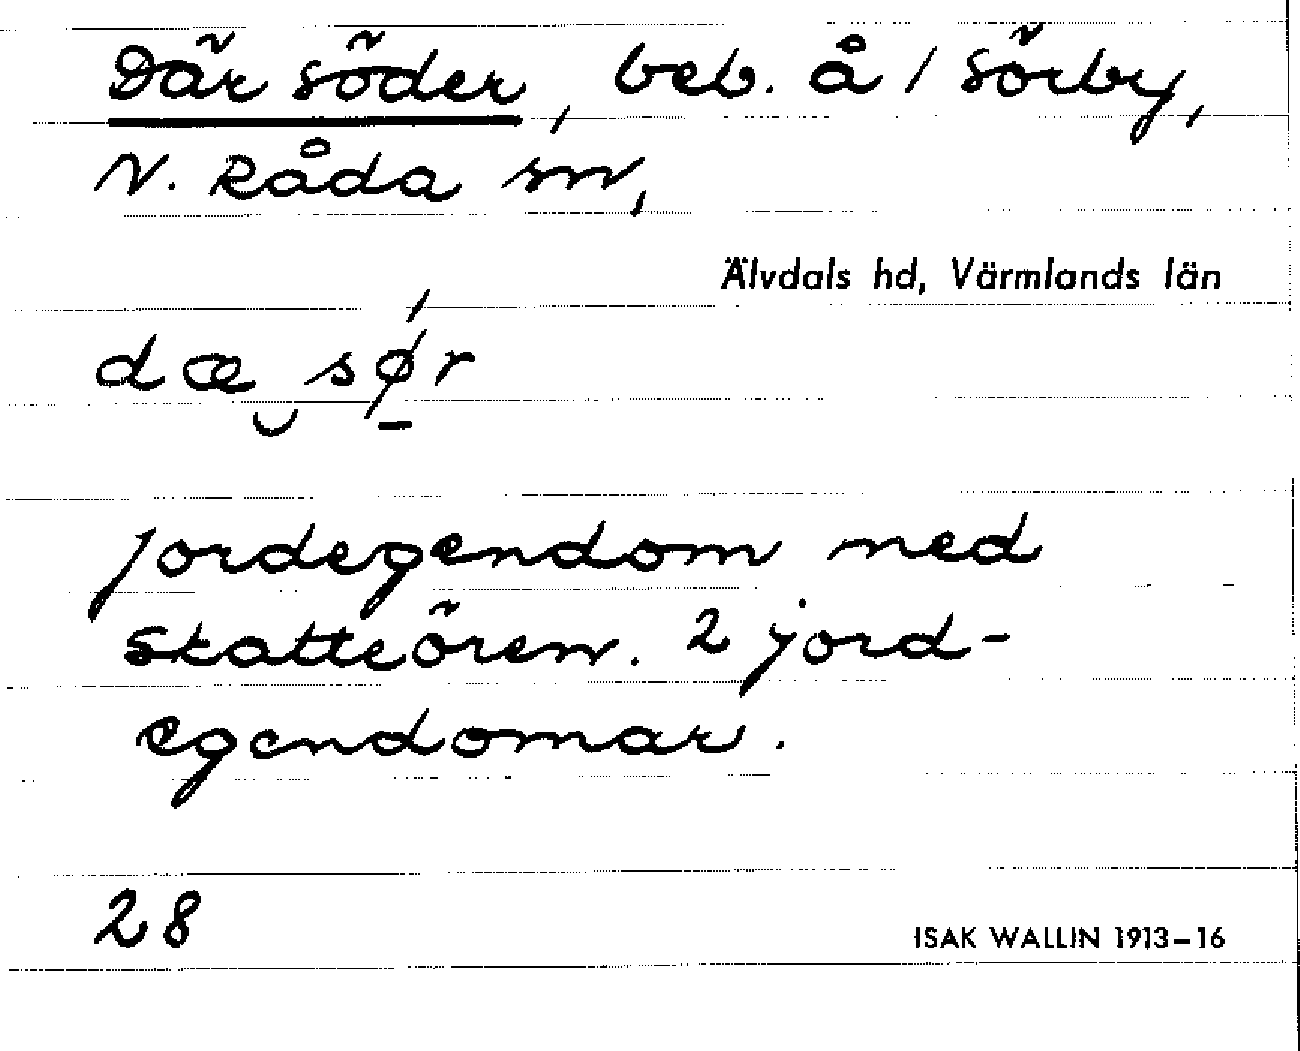 Där söder, beb. å / Sörby,
N. Råda sn,
Älvdals hd, Värmlands län
dæ sø̱r
jordegendom med
skatteören. 2 jord-
egendomar.
28
ISAK WALLIN 1913–16